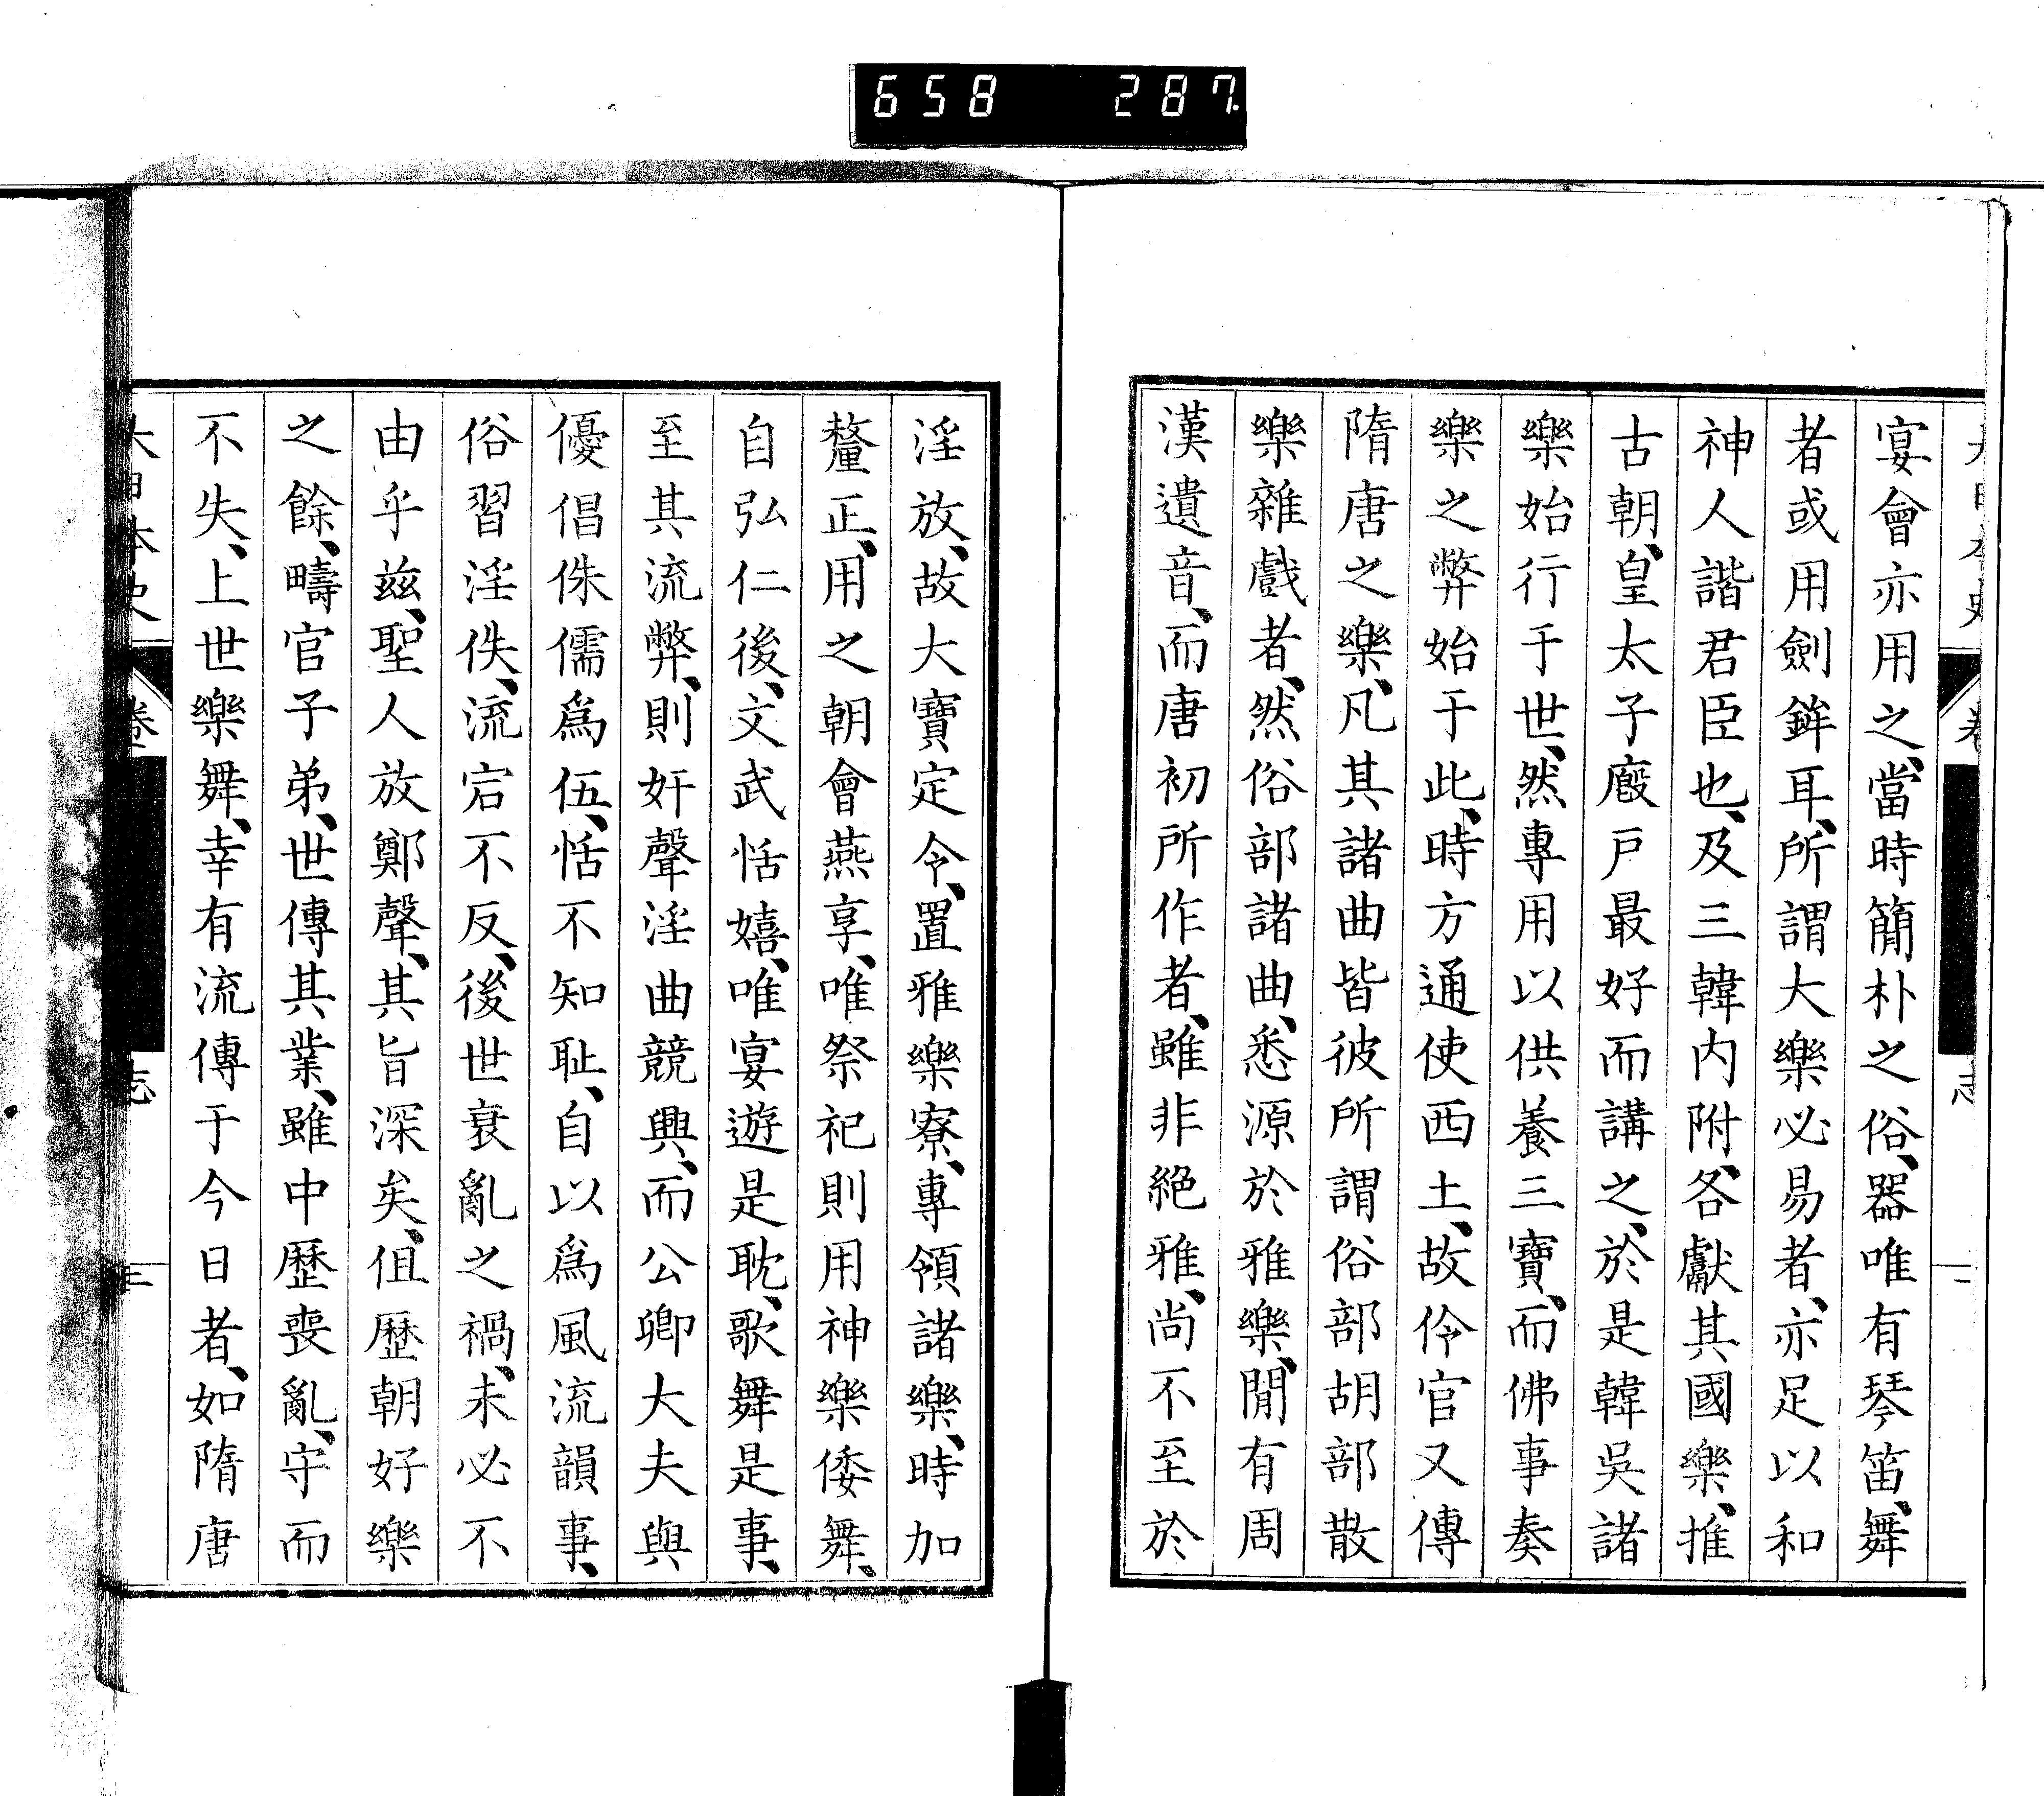 658 287
宴會亦用之、當時簡朴之俗、器唯有琴笛、舞
者或用劍鉾耳、所謂大樂必易者、亦足以和
神人諧君臣也、及三韓内附、各獻其國樂、推
古朝、皇太子廏戸最好而講之、於是韓吳諸
樂始行于世、然專用以供養三寶、而佛事奏
樂之弊始于此、時方通使西土、故伶官又傳
隋唐之樂、凡其諸曲皆彼所謂俗部胡部散
樂雜戲者、然俗部諸曲、悉源於雅樂、閒有周
漢遺音、而唐初所作者、雖非絕雅、尚不至於
淫放、故大寶定令、置雅樂寮、專領諸樂、時加
釐正、用之朝會燕享、唯祭祀則用神樂倭舞、
自弘仁後、文武恬嬉、唯宴遊是耽、歌舞是事、
至其流弊、則奸聲淫曲競興、而公卿大夫與
優倡侏儒爲伍、恬不知耻、自以爲風流韻事、
俗習淫佚、流宕不反、後世衰亂之禍、未必不
由乎茲、聖人放鄭聲、其旨深矣、但歷朝好樂
之餘、疇官子弟、世傳其業、雖中歷喪亂、守而
不失、上世樂舞、幸有流傳于今日者、如隋唐
大日本史 卷 志 三